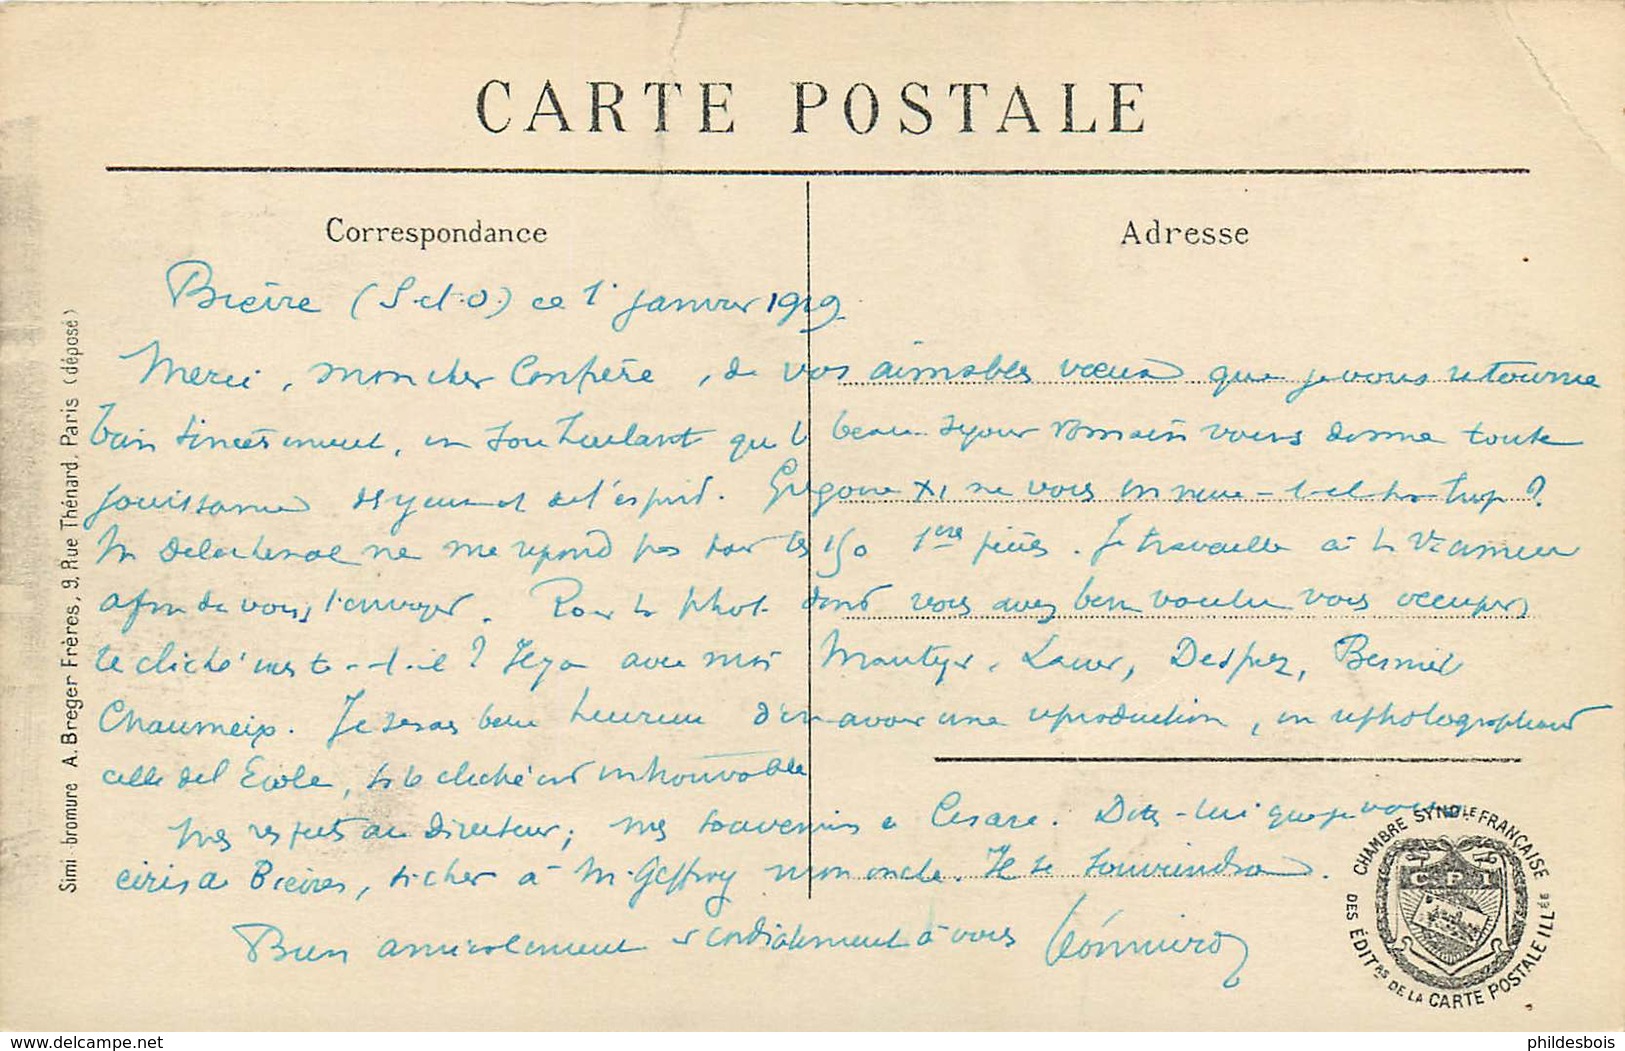 CARTE POSTALE
Correspondance
Adresse
Bièvre (S-et-O) ce 1r janvier 1919.
Merci, mon cher Confrère, de vos aimables vœux que je vous retourne
bien sincèrement, en souhaitant que le beau séjour romain vous donne toute
jouissance des yeux et de l'esprit. Grégoire XI ne vous ennuie-t-il pas trop ?
M Delachenal ne me répond pas pour les 150 1ères pièces. Je travaille à le ramener
afin de vous l'envoyer. Pour la phot. dont vous avez bien voulu vous occuper,
le cliché existe-t-il ? Il y a avec moi Martin, Lauer, Desprez, Besnier
Chaumeix. Je serais bien heureux d'en avoir une reproduction, en rephotographiant
celle de l'Ecole, si le cliché est introuvable
Mes respects au Directeur ; mes souvenirs à Cesare. Dites-lui que je vous
écris de Bièvres, si cher à M. Geffroy mon oncle. Il se souviendra.
Bien amicalement & cordialement à vous
Simi-bromure A. Breger Frères, 9, Rue Thénard, Paris (déposé)
CHAMBRE SYNDle FRANÇAISE
DES ÉDITrs DE LA CARTE POSTALE ILLée
C P I
delcampe.net
phildesbois